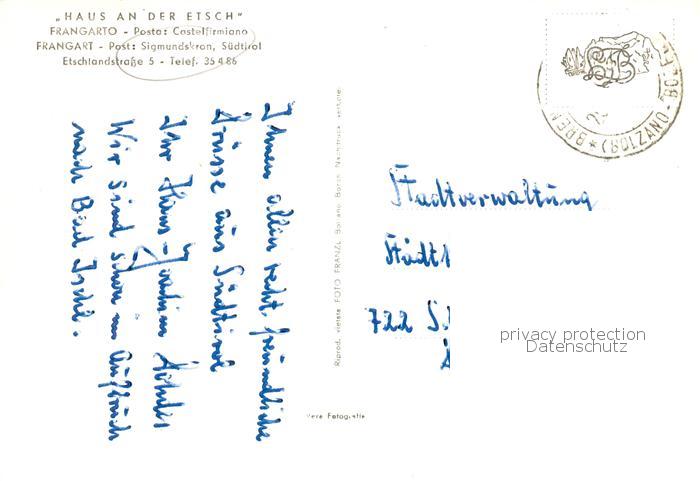 „HAUS AN DER ETSCH"
FRANGARTO - Posta: Castelfirmiano
FRANGART - Post: Sigmundskron, Südtirol
Etschlandstraße 5 - Telef. 35486
Ihnen allen recht freundliche
Grüsse aus Südtirol
Ihr Hans-Joachim Köhler
Wir sind schon im Aufbruch
nach Bad Ischl.
Riprod. vietata FOTO FRANZL Bolzano Bozen Nachdruck verboten
Vera Fotografia
(BOLZANO-BOZEN)
BREN
Stadtverwaltung
Städt
722 S
privacy protection
Datenschutz